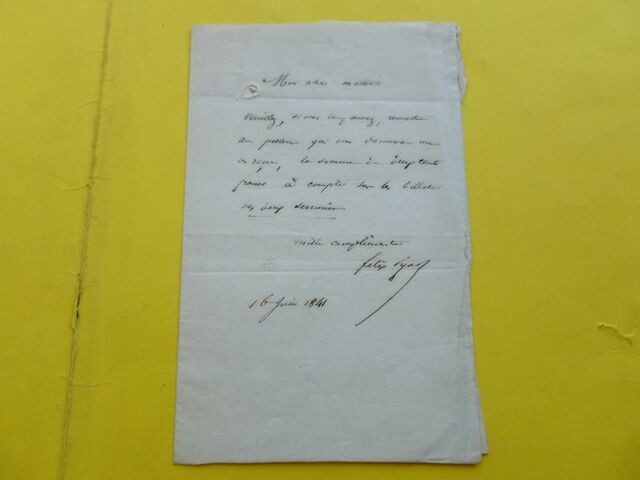 Mon cher maître
Veuillez, si vous le pouvez, remettre
au porteur qui vous donnera un
reçu, la somme de deux cents
francs à compte sur les billets
des deux serruriers
mille compliments
félix Pyat
16 Juin 1841